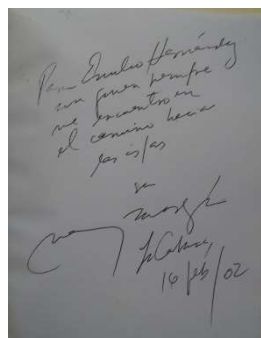 Para Emilio Hernández
con quien siempre
me encuentro en
el camino hacia
las islas
su
La Cabaña,
16/feb/02